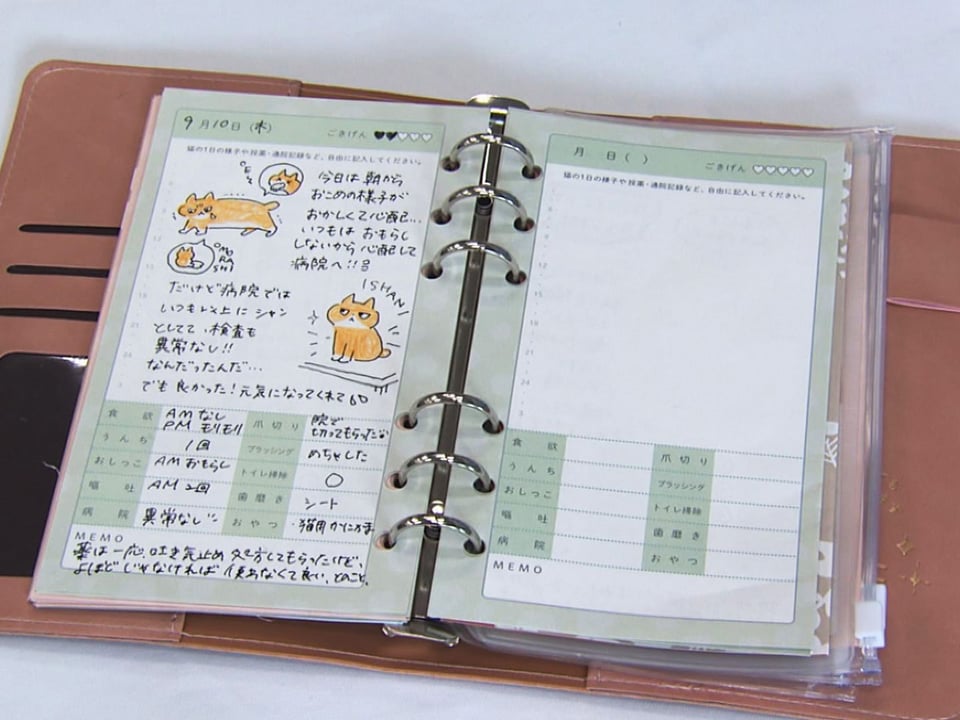 9月10日(水)
ごきげん
猫の1日の様子や投薬・通院記録など、自由に記入してください。
今日は朝から
おこめの様子が
おかしくて心配…
いつもは おもらし
しないから心配して
病院へ!!
MO
RA
SHI
ISHAN!
だけど病院では
いつも以上に シャン
としてて、検査も
異常なし!!
なんだったんだ…
でも良かった!元気になってくれて
食欲 AMなし PM モリモリ
爪切り 院で切ってもらったな
うんち 1回
ブラッシング めちゃした
おしっこ AMおもらし
トイレ掃除 ○
嘔吐 AM 2回
歯磨き シート
病院 異常なし
おやつ ・猫用かにかま
MEMO
薬は一応、吐き気止め 処方してもらったけど、
よほどじゃなければ 使わなくて良い、とのこと。
月 日( )
ごきげん
猫の1日の様子や投薬・通院記録など、自由に記入してください。
9
12
15
18
21
24
3
食欲
爪切り
うんち
ブラッシング
おしっこ
トイレ掃除
嘔吐
歯磨き
病院
おやつ
MEMO